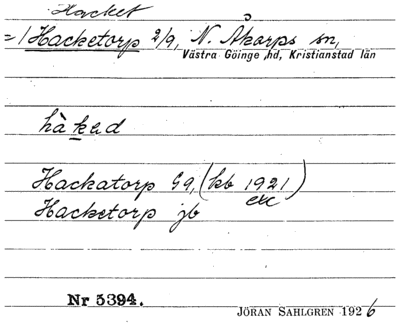 Hacket
=/ Hacketorp 2/9, N. Åkarps sn,
Västra Göinge hd, Kristianstad län
hàkad
Hackatorp Gg, (kb 1921)
etc
Hacketorp jb
Nr 5394.
JÖRAN SAHLGREN 1926